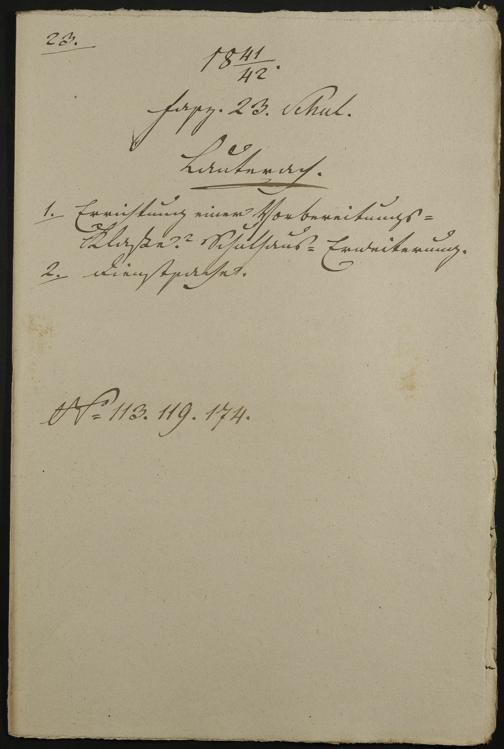 23.
18 41/42.
Fasz. 23. Schul.
Lauterach.
1. Errichtung einer Vorbereitungs=
Klaße. Schulhaus= Erweiterung.
2. Dienstsache.
No 113. 119. 174.